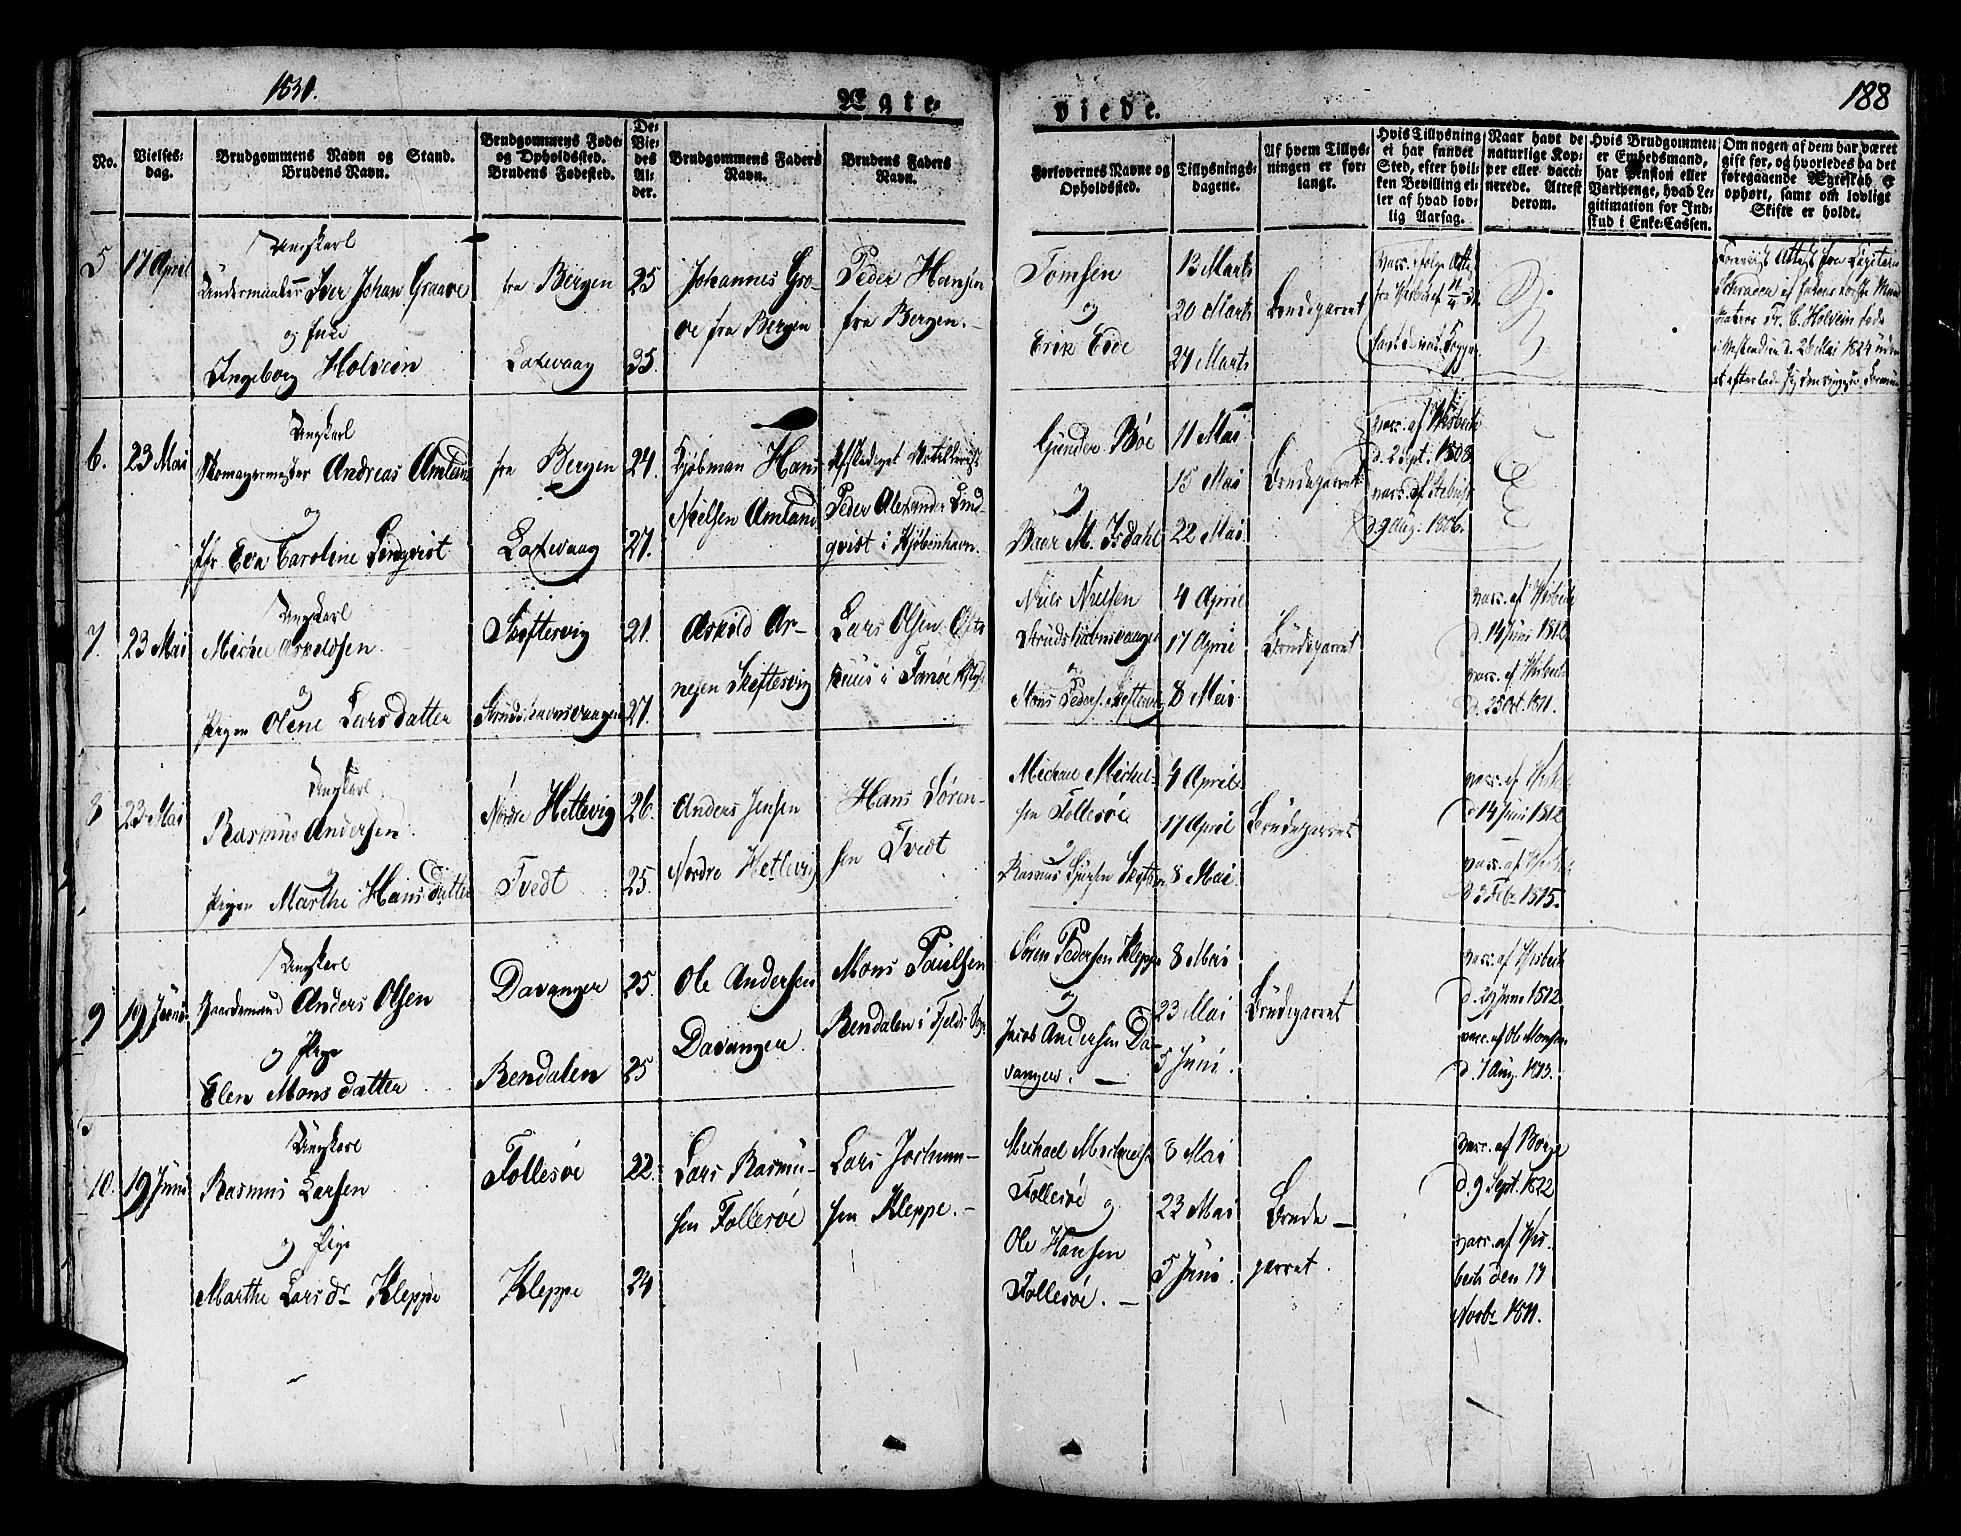 1831.
Ægte-
viede.
188
No.
Vielses-
dag.
Brudgommens Navn og Stand.
Brudens Navn.
Brudgommens Føde-
og Opholdssted.
Brudens Fødested.
De
Vie-
des
Al-
der.
Brudgommens Faders
Navn.
Brudens Faders
Navn.
Forlovernes Navne og
Opholdssted.
Tillysnings-
dagene.
Af hvem Tillys-
ningen er for-
langt.
Hvis Tillysning
ei har fundet
Sted, efter hvil-
ken Bevilling el-
ler af hvad lov-
lig Aarsag.
Naar havt de
naturlige Kop-
per eller vacci-
nerede. Attest
derom.
Hvis Brudgommen
er Embedsmand,
har Pension eller
Vartpenge, hvad Le-
gitimation for Ind-
skud i Enke-Cassen.
Om nogen af dem har været
gift før, og hvorledes da det
foregaaende Ægteskab er
ophørt, samt om lovligt
Skifte er holdt.
5
17 April
Ungkarl
Iver Johan Graave
og Enke
Ingeborg Holvein
fra Bergen
Laxevaag
25
35.
Johannes Gro-
ve fra Bergen
Peder Hansen
fra Bergen.
Tomsen
og
Erik Eide
13 Marts
20 Marts
27 Marts
Brudeparret
6.
23 Mai
Ungkarl
Skomagermester Andreas Amland
og
Jfr Eva Caroline Lindqvist
fra Bergen
Laxevaag
24.
27.
Kjøbman Hans
Nielsen Amland
Afskediget Artillerist
Peder Alexander Lind-
qvist i Kjøbenhavn.
Gunder Bøe
og
Baar M. Isdahl
11 Mai
15 Mai
22 Mai
Brudeparret
vacc. af Wisbech
d. 2 Sept. 1808
d. 9 Aug. 1806.
7.
23 Mai
Ungkarl
Michel Askeldsen
og
Pigen Olene Larsdatter
Skiftesvig
Strudshavnsvaagen
21.
27.
Askild Ar-
nesen Skiftesvig
Lars Olsen
i Fanøe
Niels Nielsen
Strudshavnsvaagen
og
Mons Peders. Skiftesvig
4 April
17 April
8 Mai
Brudeparret
vacc. af Wisbech
d. 14 Juni 1812
vacc. af Wisbech
d. 25 Oct. 1811.
8
23 Mai
Ungkarl
Rasmus Andersen
og
Pigen Marthe Hansdatter
Nordre Hettevig
Tvedt
26.
25.
Anders Jensen
Nordre Hettevig
Hans Søren-
sen Tvedt
Michael Michel-
sen Follesøe
og
4 April
17 April
8 Mai
Brudeparret
vacc. af
d. 14 Juni 1812
vacc. af
d. 3 Febr 1815.
9
19 Junii
Ungkarl
Gaardmand Anders Olsen
og Pige
Elen Mons datter
Davanger
Rendalen
25.
25
Ole Andersen
Davanger
Mons Paulsen
Rendalen i Fjelds Sogn
Søren Pedersen Kleppe
og
Jacob Andersen Da-
vanger.
8 Mai
23 Mai
5 Juni.
Brudeparret
vacc. af Wisbech
d. 29 Juni 1812
vacc. af Ole Monsen
d. 1 Aug. 1813.
10.
19 Juni
Ungkarl
Rasmus Larsen
og Pige
Marthe Larsdr Kleppe
Follesøe
Kleppe
22.
24
Lars Rasmu-
sen Follesøe
Lars Jochum-
sen Kleppe.
Michael Michaels.
Follesøe og
Ole Hansen
Follesøe.
8 Mai
23 Mai
5 Juni.
Brude-
parret.
vacc. af Borge
d. 9 Sept. 1822
vacc. af Wis-
bech den 17
Novbr 1811.